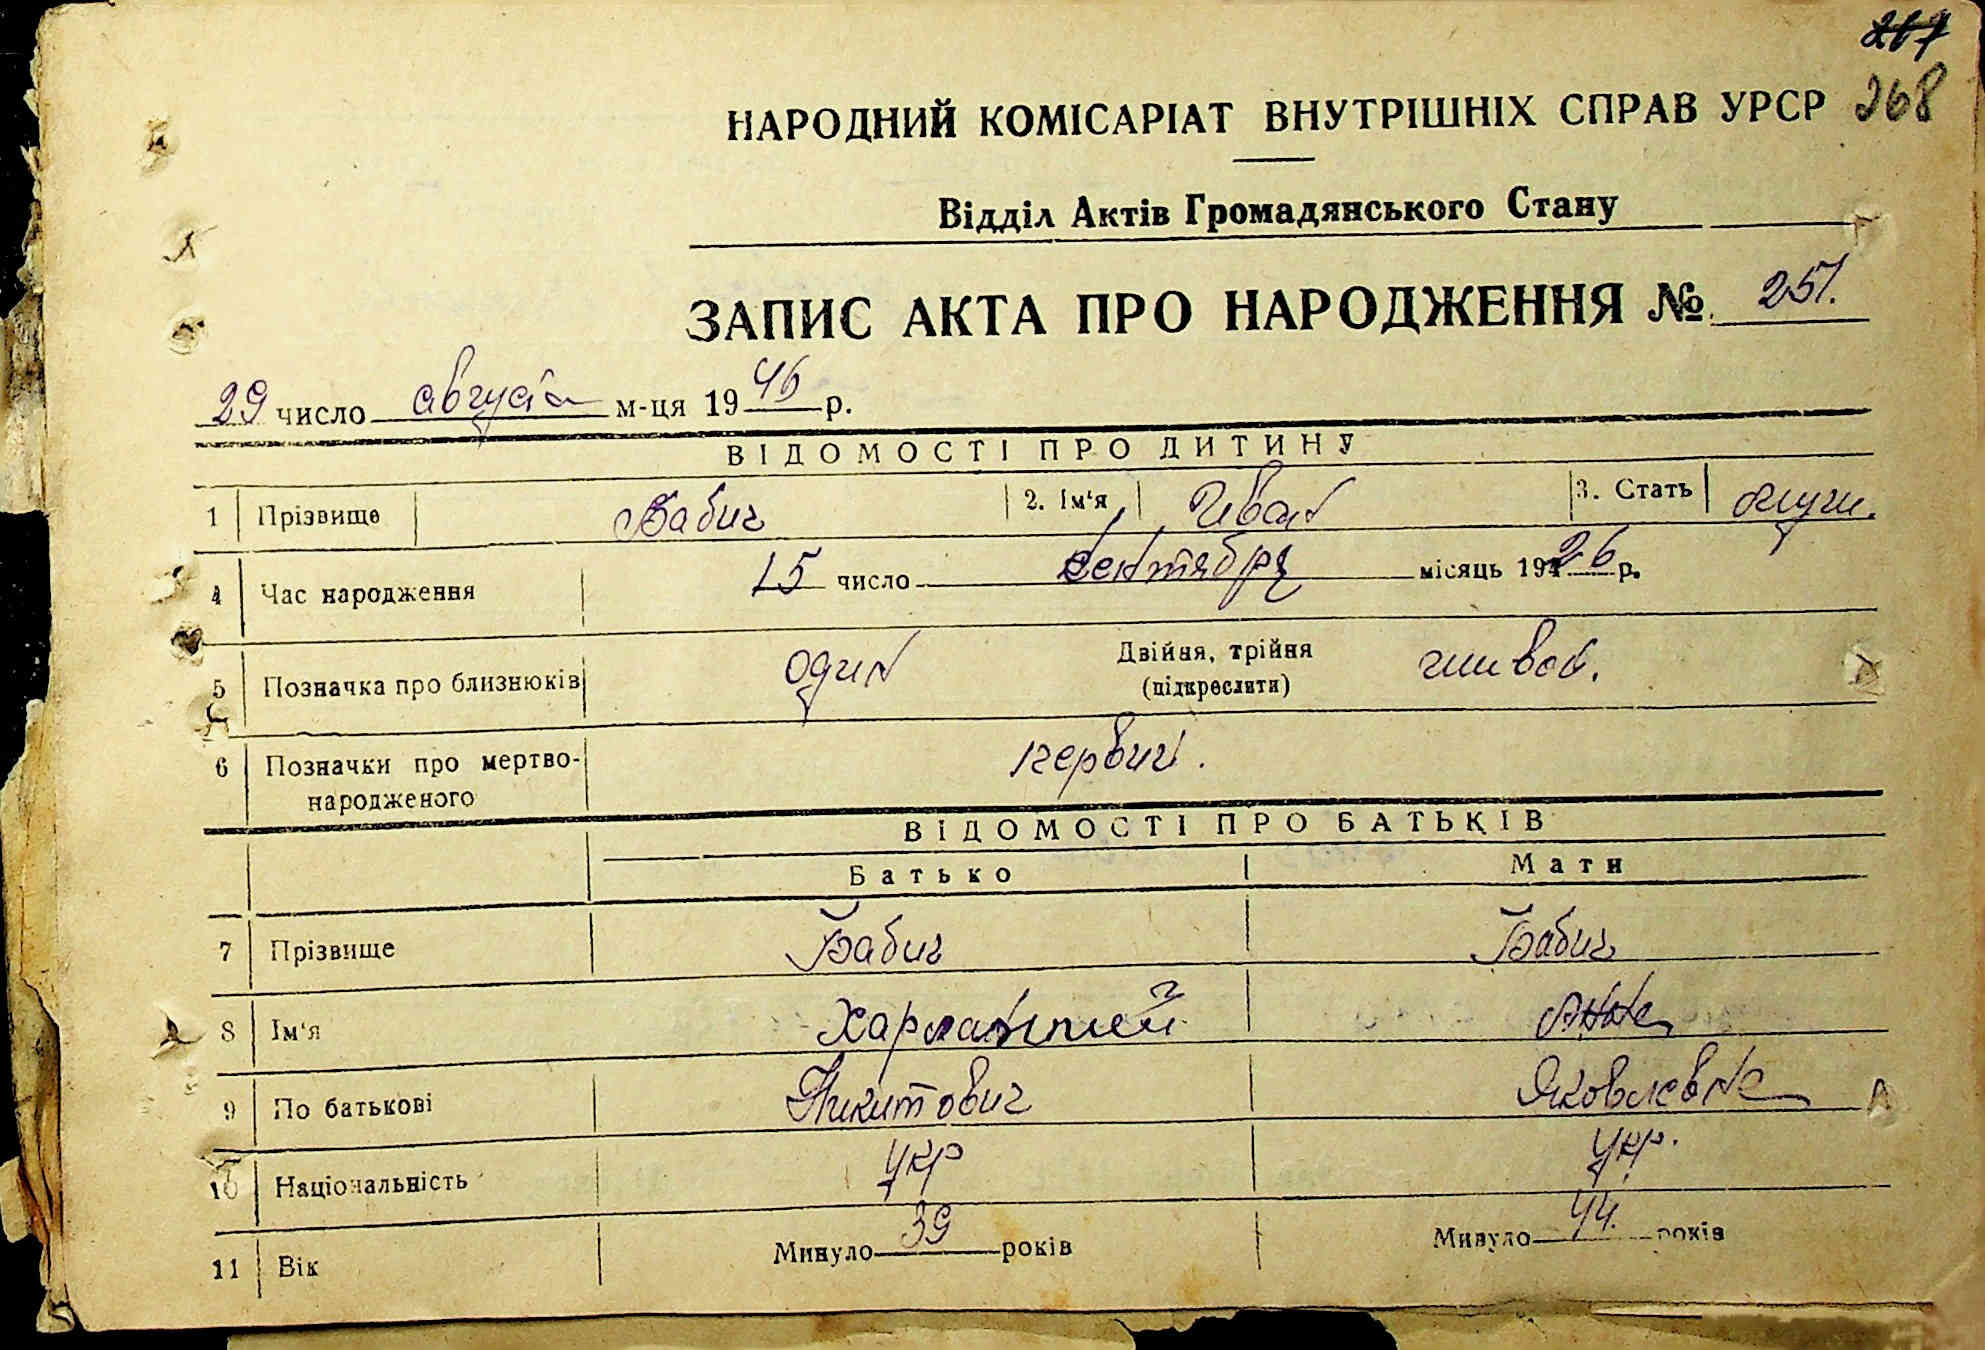 267
268
НАРОДНИЙ КОМІСАРІАТ ВНУТРІШНІХ СПРАВ УРСР
Відділ Актів Громадянського Стану
ЗАПИС АКТА ПРО НАРОДЖЕННЯ № 251.
29 число августа м-ця 1946 р.
ВІДОМОСТІ ПРО ДИТИНУ
1 Прізвище Бабич 2. Ім'я Иван 3. Стать муж.
4 Час народження 15 число сентября місяць 1926 р.
5 Позначка про близнюків один Двійня, трійня (підкреслити) живой.
6 Позначки про мертвонародженого первий.
ВІДОМОСТІ ПРО БАТЬКІВ
Батько Мати
7 Прізвище Бабич Бабич
8 Ім'я Харлампий Анна
9 По батькові Никитович Яковлевна
10 Національність укр укр.
11 Вік Минуло 39 років Минуло 44. років